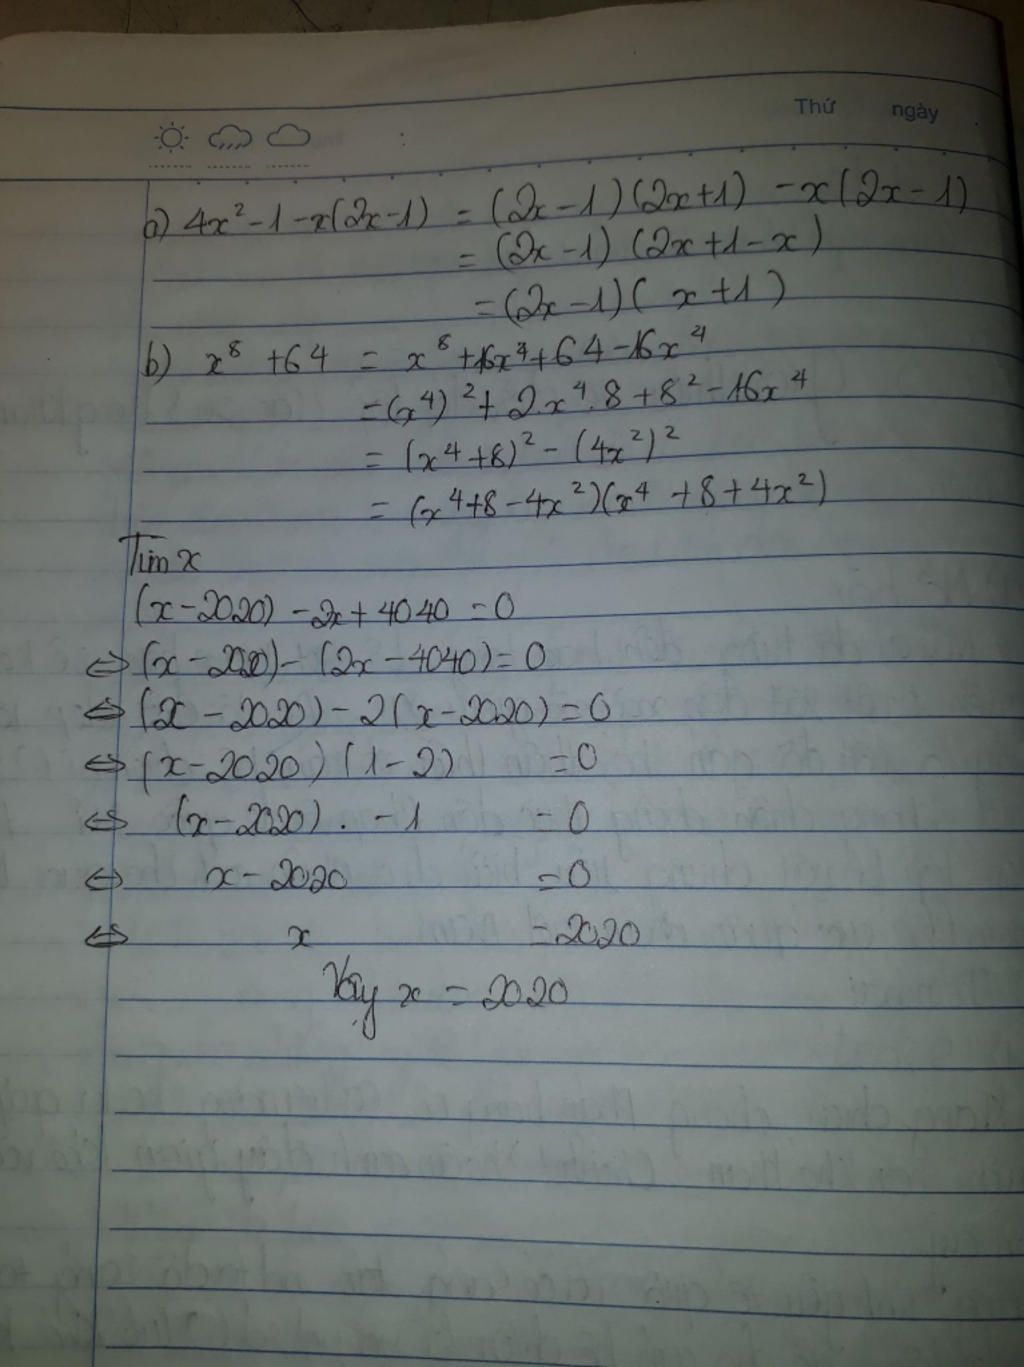 Thứ ngày
:
a) 4x² - 1 - x(2x - 1) = (2x - 1)(2x + 1) - x(2x - 1)
= (2x - 1) (2x + 1 - x)
= (2x - 1) ( x + 1 )
b) x⁸ + 64 = x⁸ + 16x⁴ + 64 - 16x⁴
= (x⁴)² + 2.x⁴.8 + 8² - 16x⁴
= (x⁴ + 8)² - (4x²)²
= (x⁴ + 8 - 4x²)(x⁴ + 8 + 4x²)
Tìm x
(x - 2020) - 2x + 4040 = 0
⇔ (x - 2020) - (2x - 4040) = 0
⇔ (x - 2020) - 2(x - 2020) = 0
⇔ (x - 2020) (1 - 2) = 0
⇔ (x - 2020) . -1 = 0
⇔ x - 2020 = 0
⇔ x = 2020
Vậy x = 2020